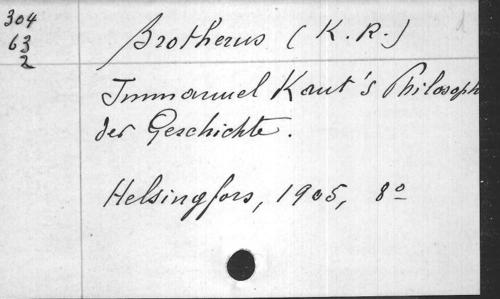 304
63
2
Brotherus (K. R.)
1
Immanuel Kant's Philosoph
der Geschichte.
Helsingfors, 1905, 8º